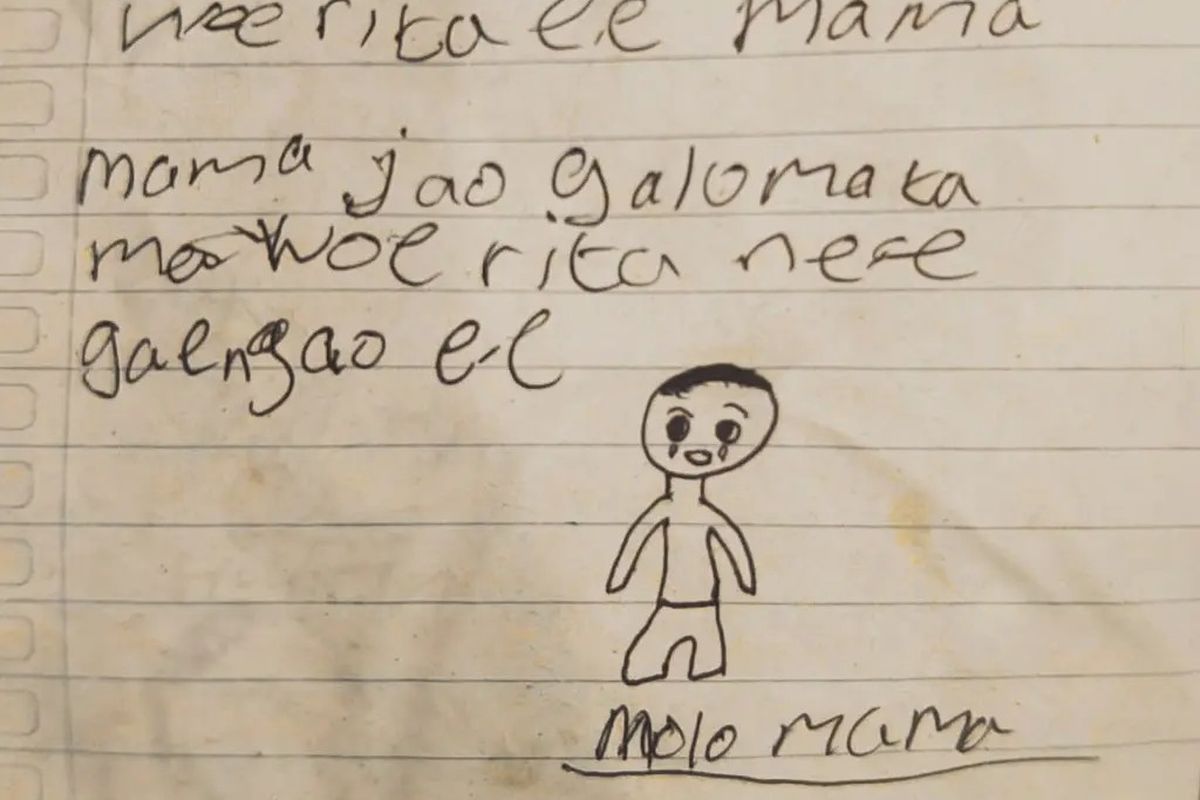 woe rita e.e mama
mama jao galomaka
ma woe rita nere
gaengao e-e
molo mama